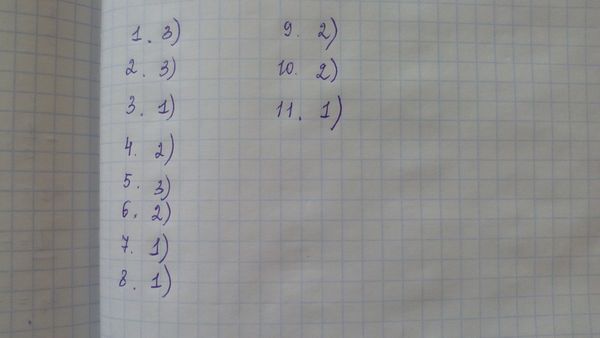 1. 3)
2. 3)
3. 1)
4. 2)
5. 3)
6. 2)
7. 1)
8. 1)
9. 2)
10. 2)
11. 1)